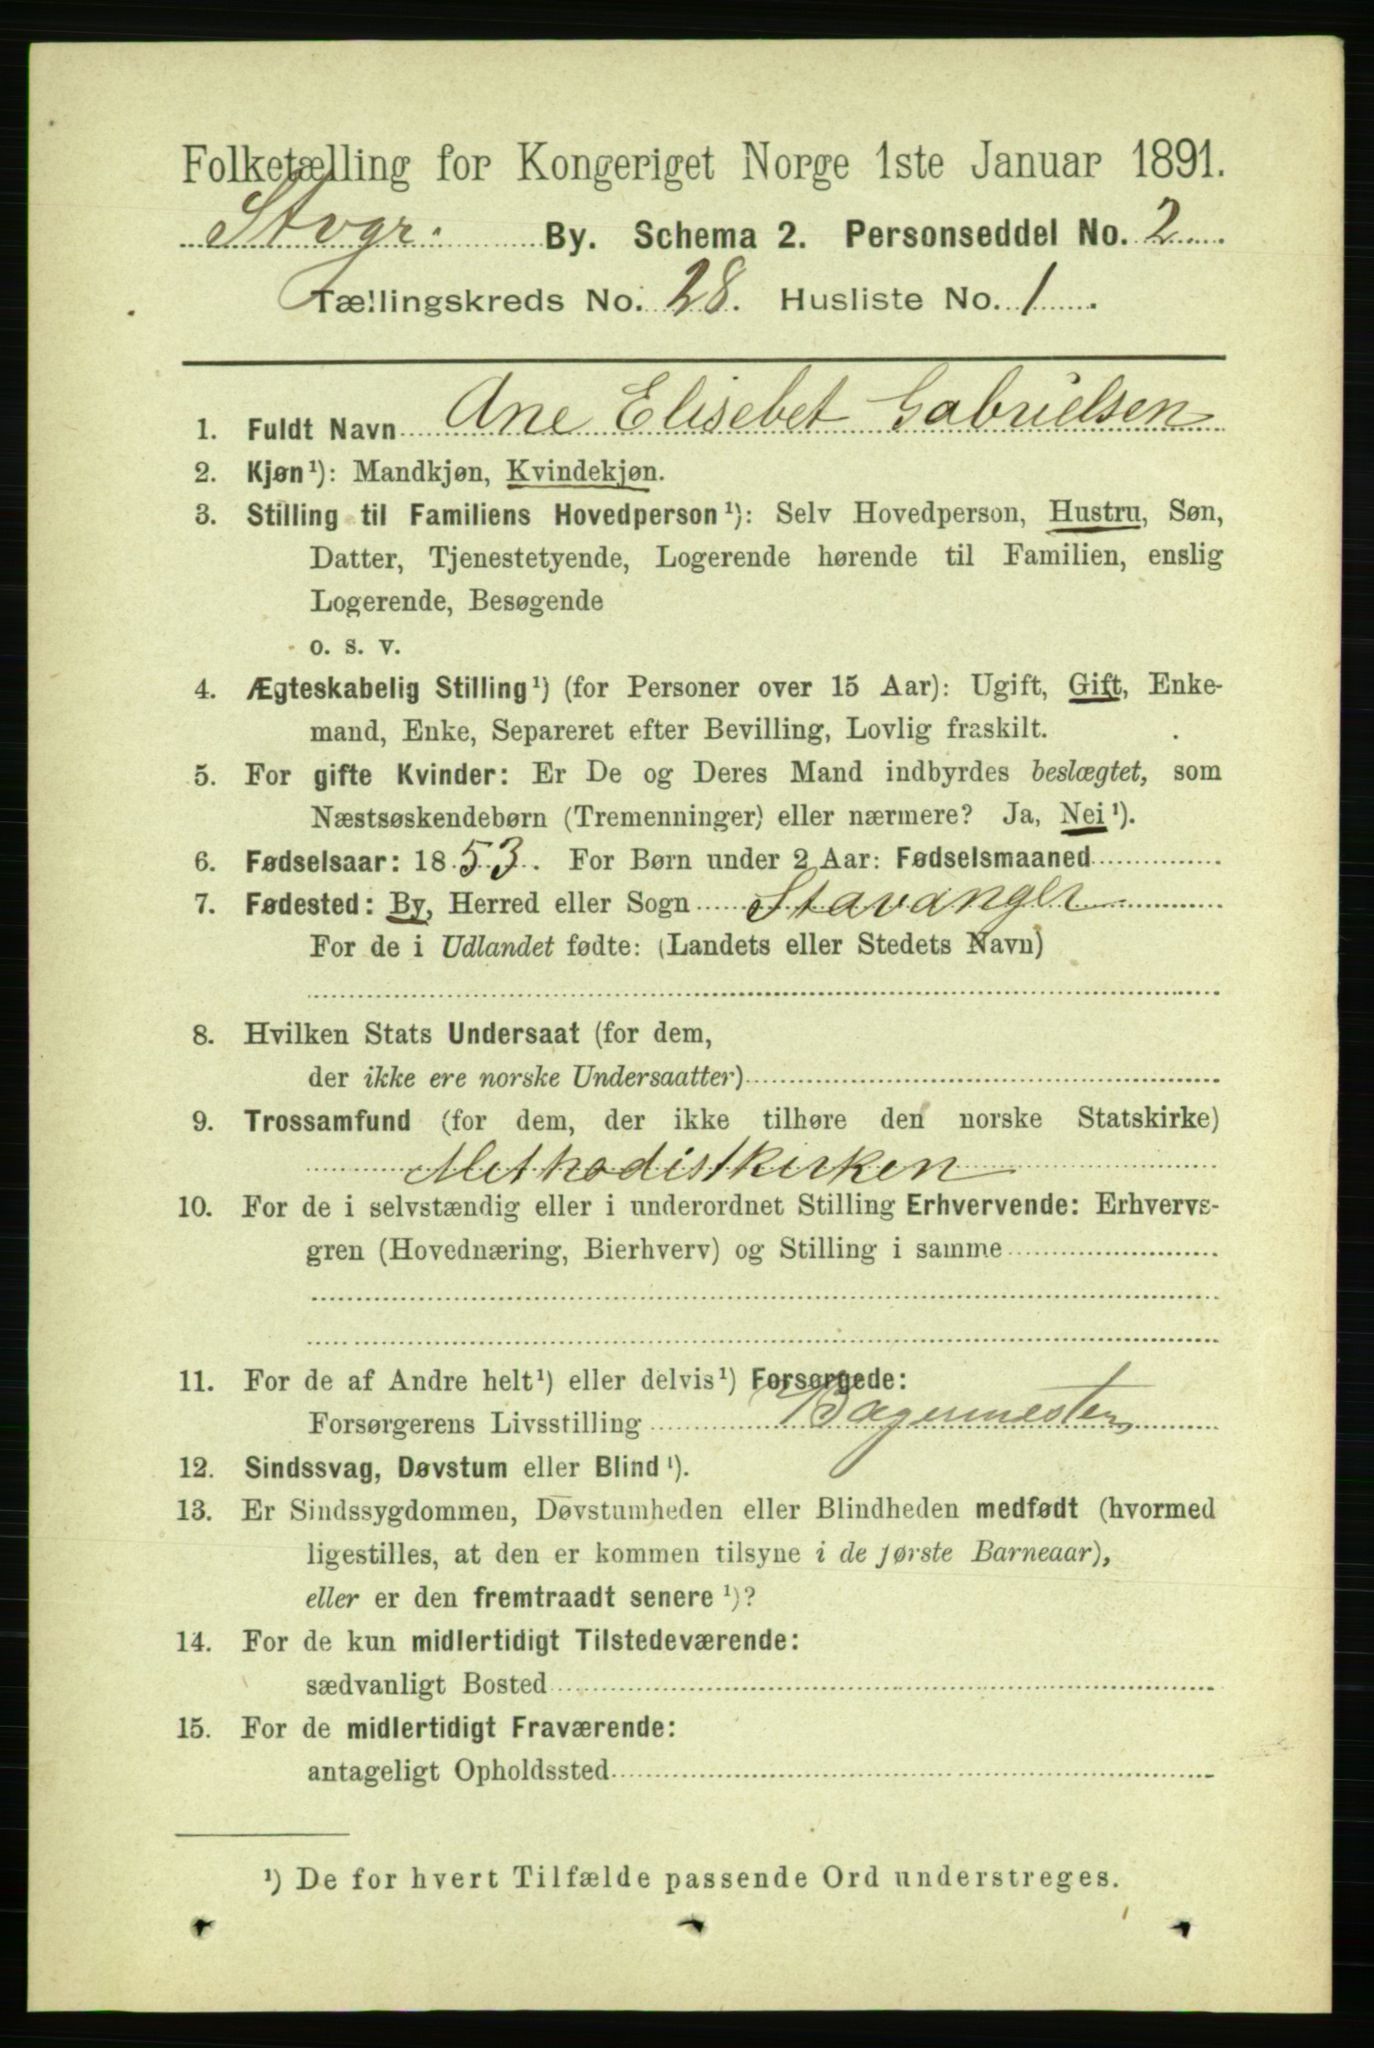 Folketælling for Kongeriget Norge 1ste Januar 1891.
Stvgr. By. Schema 2. Personseddel No. 2
Tællingskreds No. 28. Husliste No. 1
1. Fuldt Navn Ane Elisebet Gabrielsen
2. Kjøn¹): Mandkjøn, Kvindekjøn.
3. Stilling til Familiens Hovedperson¹): Selv Hovedperson, Hustru, Søn,
Datter, Tjenestetyende, Logerende hørende til Familien, enslig
Logerende, Besøgende
o. s. v.
4. Ægteskabelig Stilling¹) (for Personer over 15 Aar): Ugift, Gift, Enke-
mand, Enke, Separeret efter Bevilling, Lovlig fraskilt.
5. For gifte Kvinder: Er De og Deres Mand indbyrdes beslægtet, som
Næstsøskendebørn (Tremenninger) eller nærmere? Ja, Nei¹).
6. Fødselsaar: 1853. For Børn under 2 Aar: Fødselsmaaned
7. Fødested: By, Herred eller Sogn Stavanger
For de i Udlandet fødte: (Landets eller Stedets Navn)
8. Hvilken Stats Undersaat (for dem,
der ikke ere norske Undersaatter)
9. Trossamfund (for dem, der ikke tilhøre den norske Statskirke)
Methodistkirken
10. For de i selvstændig eller i underordnet Stilling Erhvervende: Erhvervs-
gren (Hovednæring, Bierhverv) og Stilling i samme
11. For de af Andre helt¹) eller delvis¹) Forsørgede:
Forsørgerens Livsstilling Bagermester
12. Sindssvag, Døvstum eller Blind¹).
13. Er Sindssygdommen, Døvstumheden eller Blindheden medfødt (hvormed
ligestilles, at den er kommen tilsyne i de første Barneaar),
eller er den fremtraadt senere¹)?
14. For de kun midlertidigt Tilstedeværende:
sædvanligt Bosted
15. For de midlertidigt Fraværende:
antageligt Opholdssted
¹) De for hvert Tilfælde passende Ord understreges.